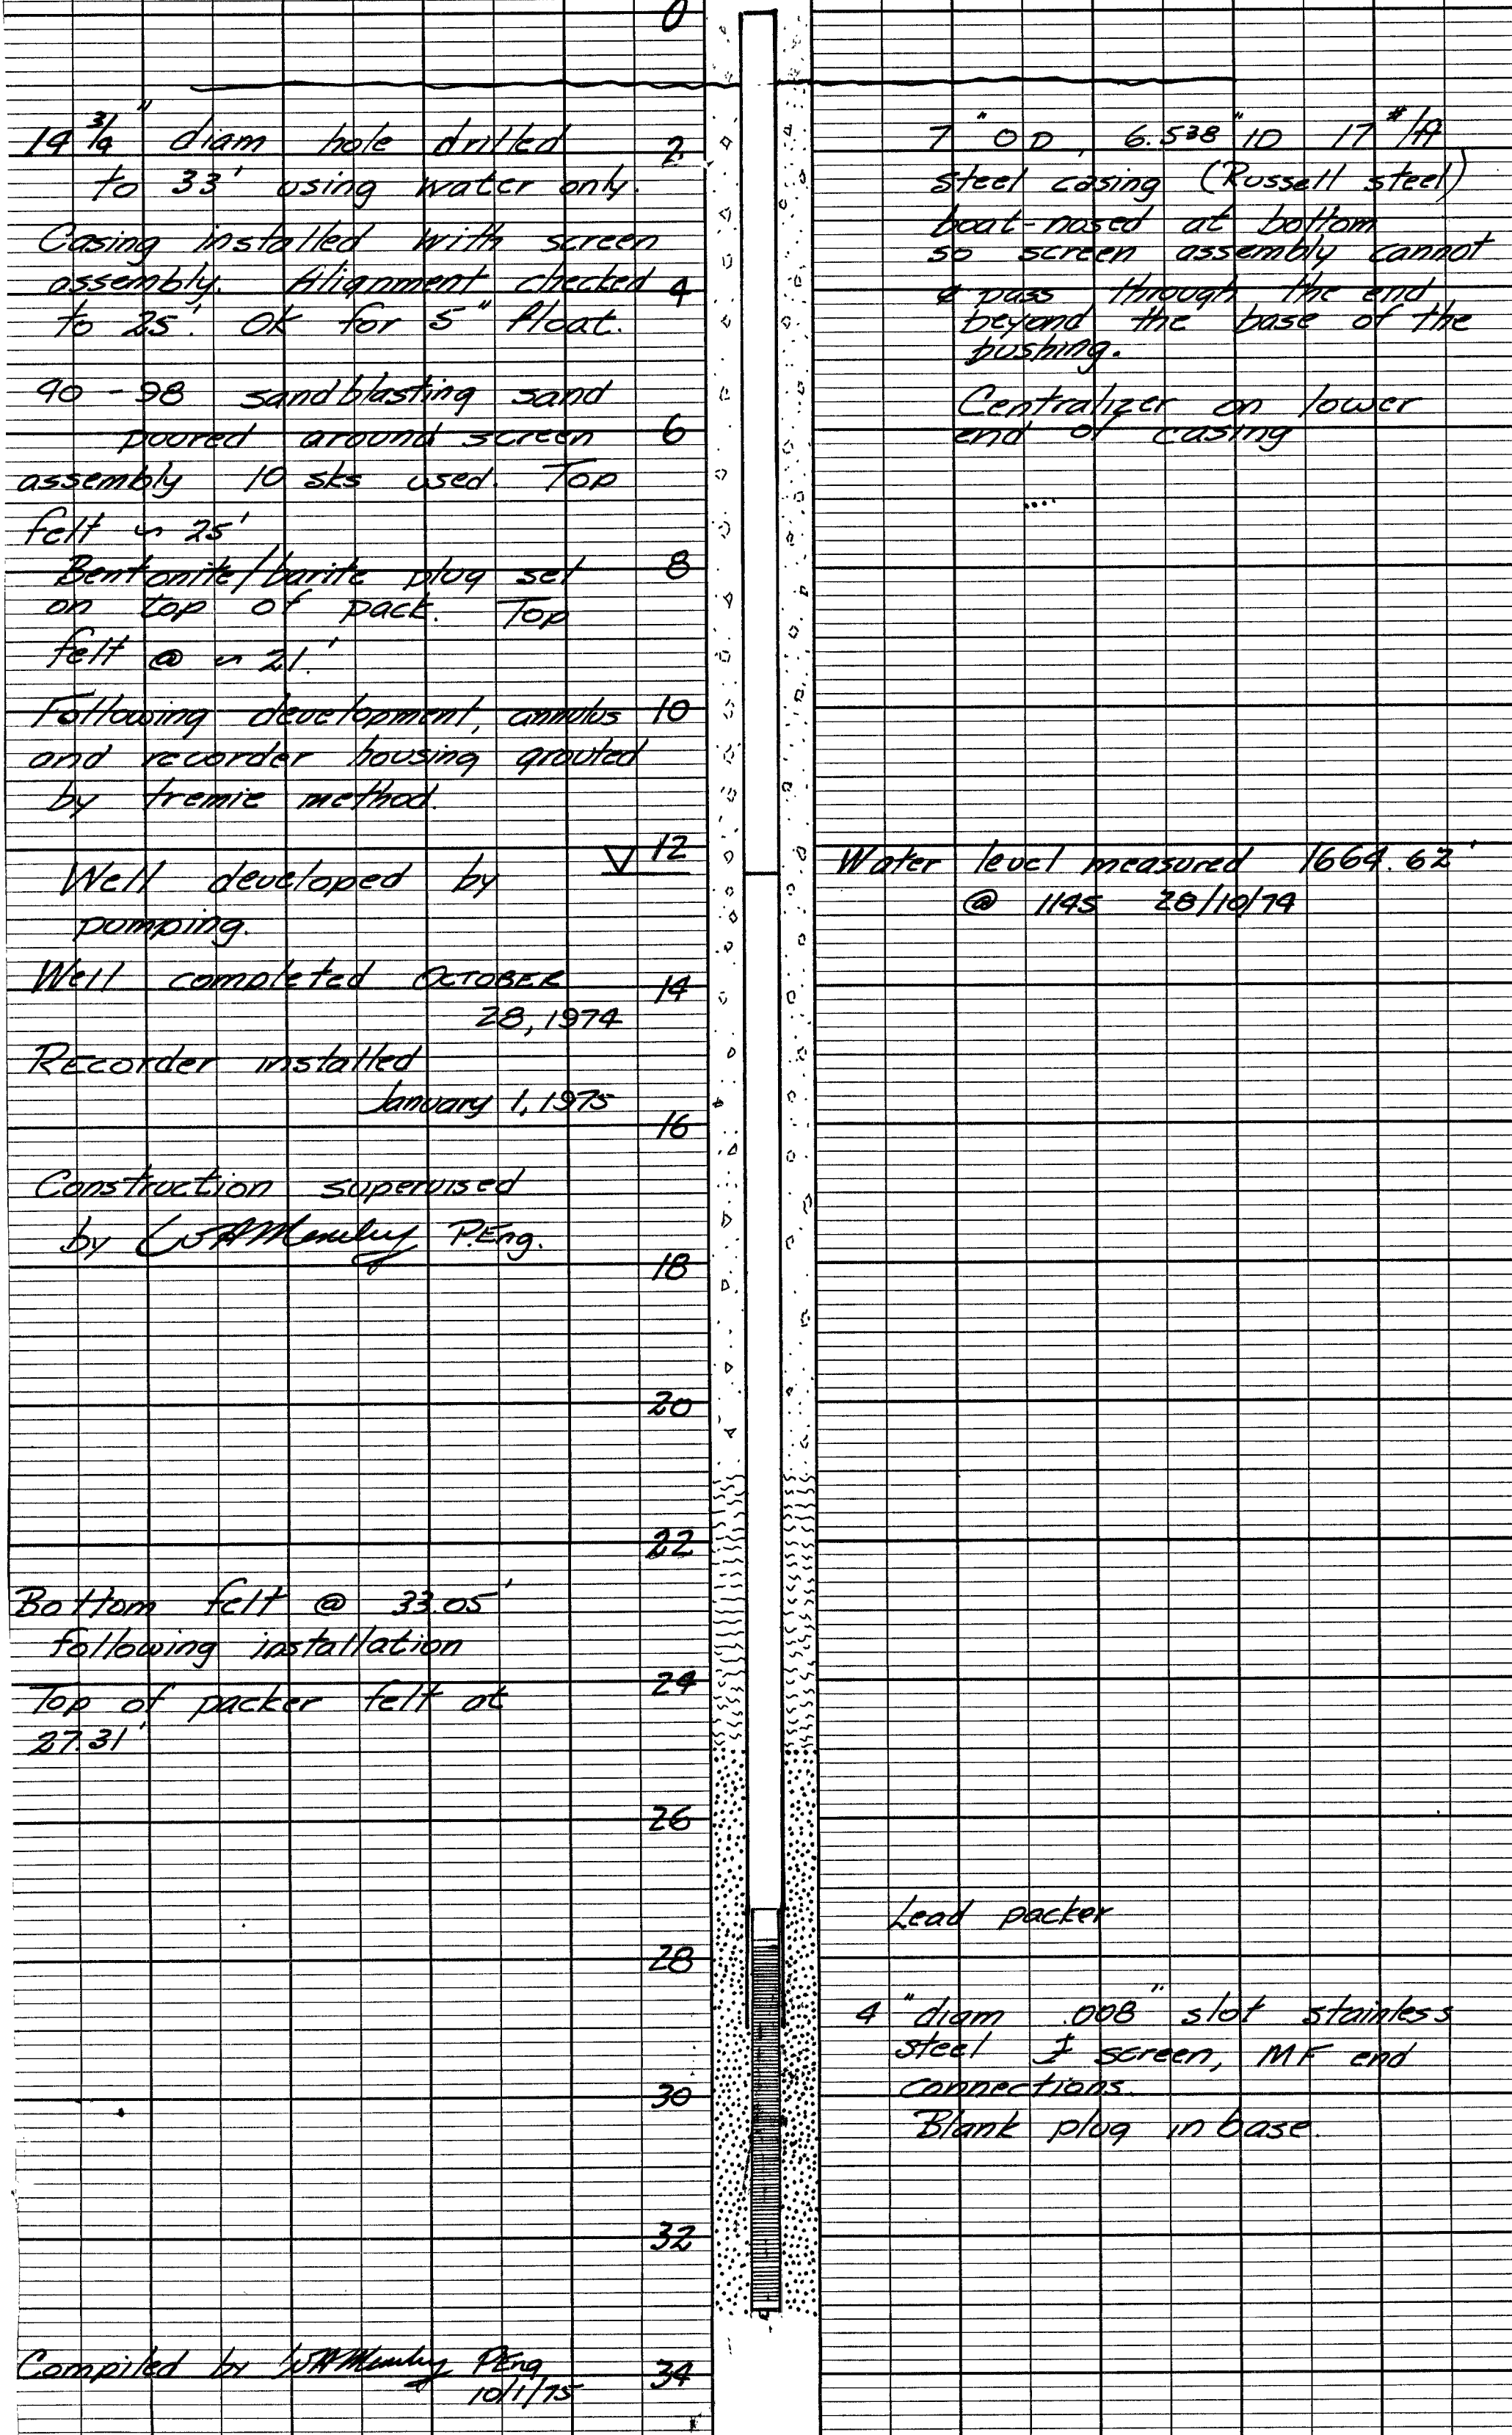 0
14 3/4" diam hole drilled
to 33' using water only.
Casing installed with screen
assembly. Alignment checked
to 25'. OK for 5" float.
40 - 98 sandblasting sand
poured around screen
assembly 10 sks used. Top
felt ~ 25'
Bentonite/barite plug set
on top of pack. Top
felt @ ~ 21.'
Following development, annulus
and recorder housing grouted
by tremie method.
Well developed by
pumping.
Well completed OCTOBER
28, 1974
RECorder installed
January 1, 1975
Construction supervised
by P.Eng.
Bottom felt @ 33.05'
following installation
Top of packer felt at
27.31'
Compiled by P.Eng
10/1/75
2
4
6
8
10
12
14
16
18
20
22
24
26
28
30
32
34
7" OD, 6.538" ID 17 #/ft
steel casing (Russell steel)
boat-nosed at bottom
so screen assembly cannot
pass through the end
beyond the base of the
bushing.
Centralizer on lower
end of casing
....
Water level measured 1664.62'
@ 1145 28/10/74
Lead packer
4" diam .008" slot stainless
steel screen, MF end
connections.
Blank plug in base.